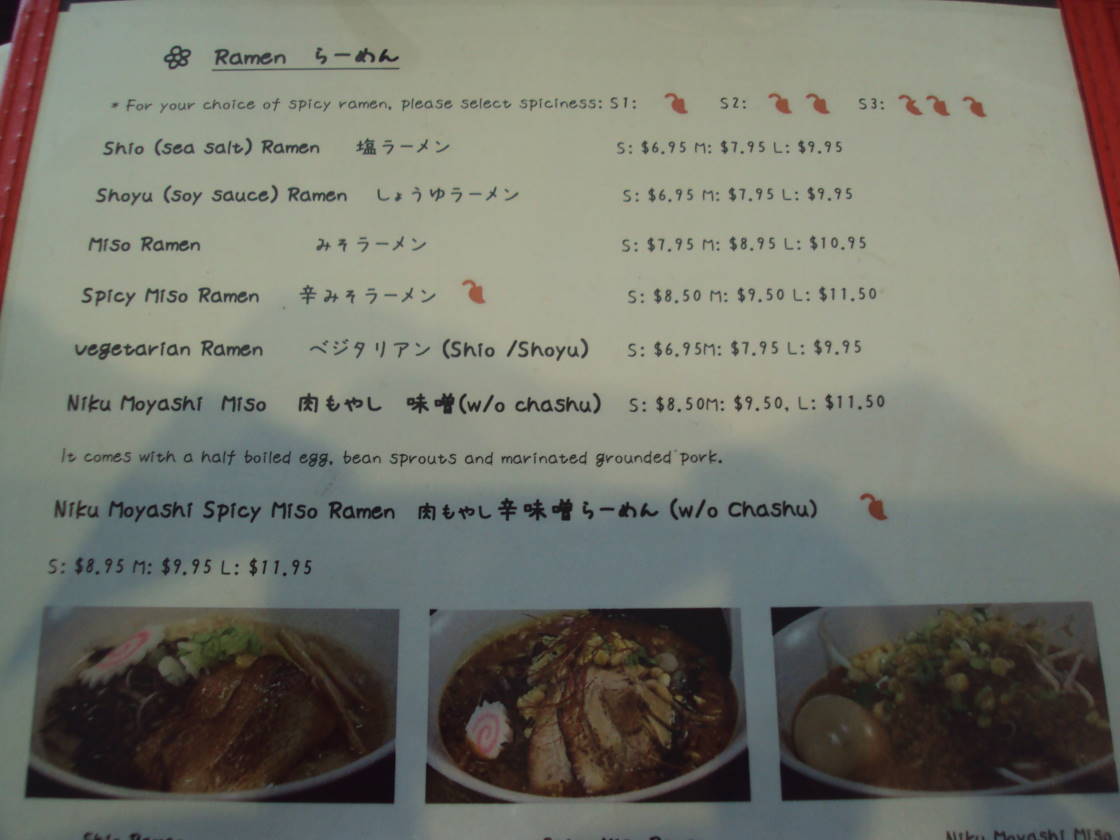 Ramen らーめん
* For your choice of spicy ramen, please select spiciness: S1: S2: S3:
Shio (sea salt) Ramen 塩ラーメン S: $6.95 M: $7.95 L: $9.95
Shoyu (soy sauce) Ramen しょうゆラーメン S: $6.95 M: $7.95 L: $9.95
Miso Ramen みそラーメン S: $7.95 M: $8.95 L: $10.95
Spicy Miso Ramen 辛みそラーメン S: $8.50 M: $9.50 L: $11.50
vegetarian Ramen ベジタリアン (Shio /Shoyu) S: $6.95M: $7.95 L: $9.95
Niku Moyashi Miso 肉もやし 味噌(w/o chashu) S: $8.50M: $9.50, L: $11.50
It comes with a half boiled egg, bean sprouts and marinated grounded pork.
Niku Moyashi Spicy Miso Ramen 肉もやし辛味噌らーめん (w/o Chashu)
S: $8.95 M: $9.95 L: $11.95
Shio Ramen Spicy Miso Ramen Niku Moyashi Miso